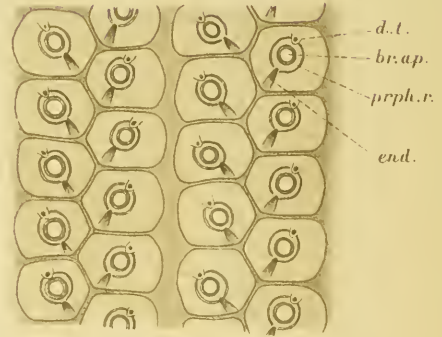 d.t.
br.ap.
prph.r.
end.